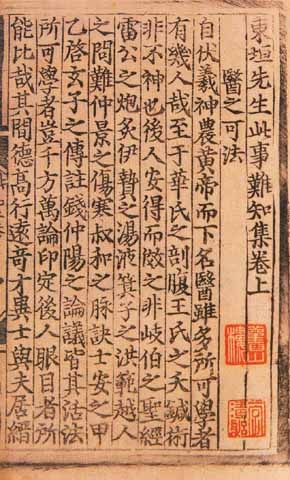 東垣先生此事難知集卷上
醫之可法
自伏羲神農黃帝而下名醫雖多所可學者
有幾人哉至于華氏之剖腹王氏之天鍼術
非不神也後人安得而效之非岐伯之聖經
雷公之炮炙伊摯之湯液箕子之洪範越人
之問難仲景之傷寒叔和之脉訣士安之甲
乙啓玄子之傳註錢仲陽之論議皆其活法
所可學者豈千方萬論印定後人眼目者所
能比哉其間德高行遠音才異士與夫居縉